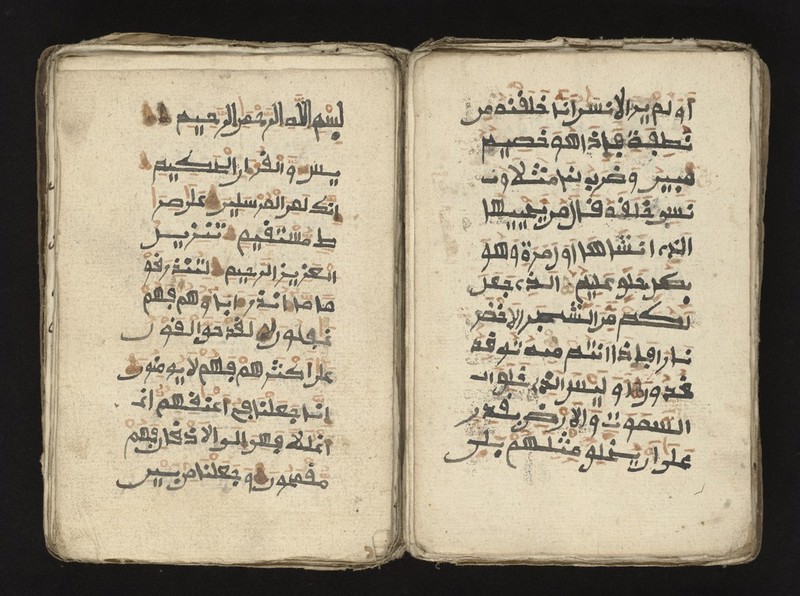 أولم ير الانسن أنا خلقنه من
نطفة فإذا هو خصيم
مبين وضرب لنا مثلا و
نسي خلقه قال من يحييها
الذي انشاها اول مرة وهو
بكل خلق عليم الذي جعل
لكم من الشجر الاخضر
نارا فإذا انتم منه توقد
ون اوليس الذي خلق
السموت والارض بقدر
على ان يخلق مثلهم بلى
بسم الله الرحمن الرحيم
يس والقران الحكيم
انك لمن المرسلين على صر
ط مستقيم تنزيل
العزيز الرحيم لتنذر قو
ما ما انذر اباوهم فهم
غفلون لقد حق القول
على اكثرهم فهم لا يومنون
انا جعلنا في اعنقهم
اغللا فهي الى الاذقان فهم
مقمحون وجعلنا من بين